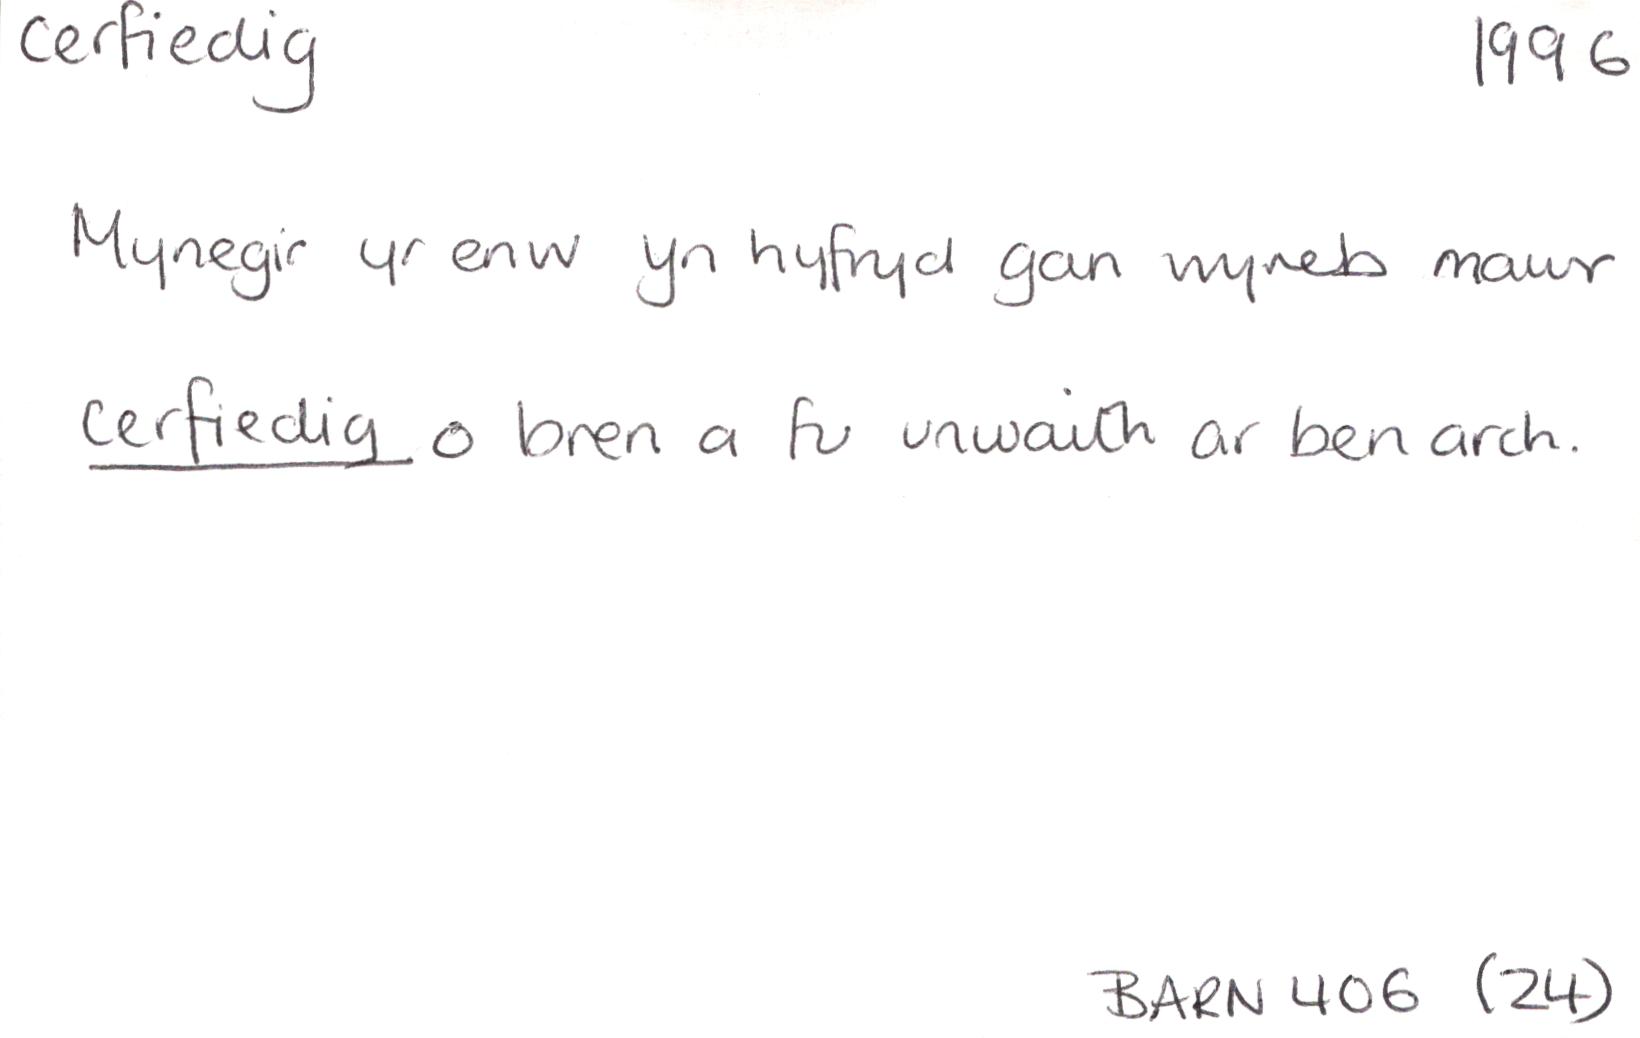 cerfiedig 1996
Mynegir yr enw yn hyfryd gan wyneb mawr
cerfiedig o bren a fu unwaith ar ben arch.
BARN 406 (24)